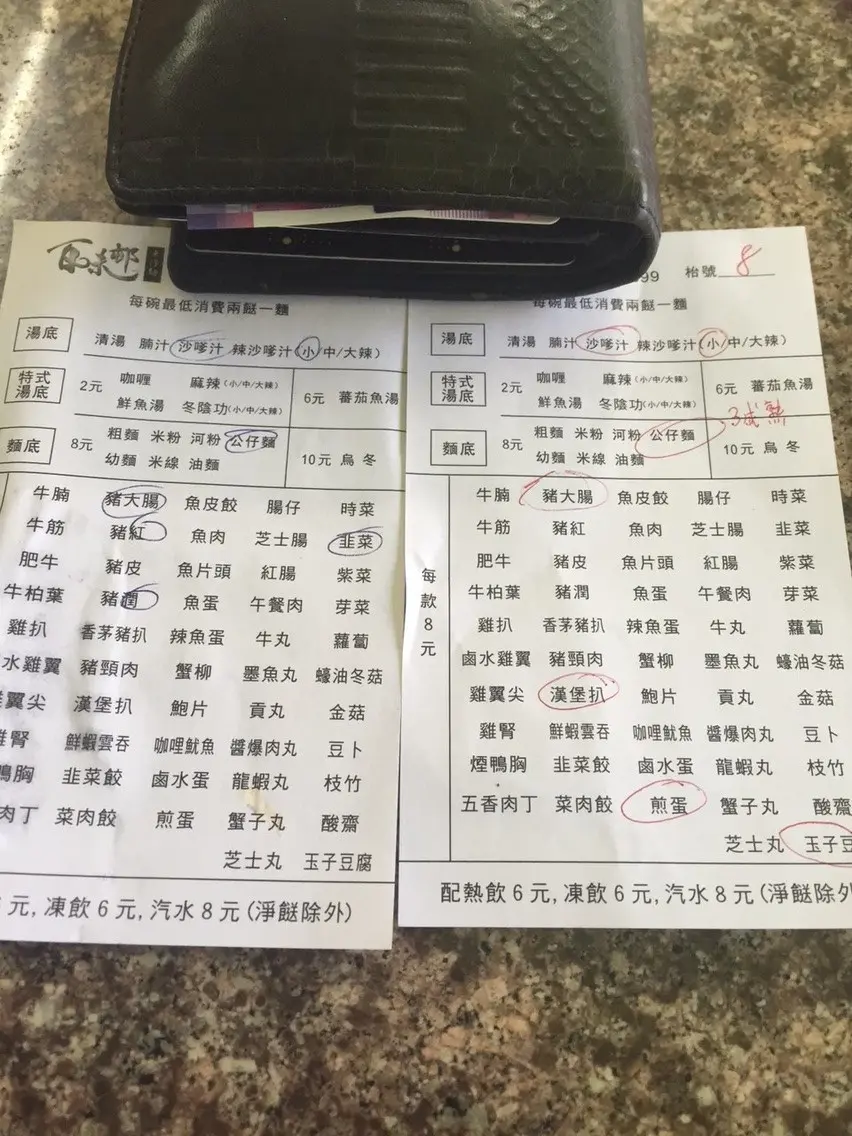 每碗最低消費兩餸一麵
湯底 清湯 腩汁 沙嗲汁 辣沙嗲汁(小/中/大辣)
特式湯底 2元 咖喱 麻辣(小/中/大辣) 6元 蕃茄魚湯
鮮魚湯 冬陰功(小/中/大辣)
麵底 8元 粗麵 米粉 河粉 公仔麵 10元 烏冬
幼麵 米線 油麵
牛腩 豬大腸 魚皮餃 腸仔 時菜
牛筋 豬紅 魚肉 芝士腸 韮菜
肥牛 豬皮 魚片頭 紅腸 紫菜
牛柏葉 豬潤 魚蛋 午餐肉 芽菜
雞扒 香茅豬扒 辣魚蛋 牛丸 蘿蔔
水雞翼 豬頸肉 蟹柳 墨魚丸 蠔油冬菇
翼尖 漢堡扒 鮑片 貢丸 金菇
雞腎 鮮蝦雲吞 咖哩魷魚 醬爆肉丸 豆卜
鴨胸 韮菜餃 鹵水蛋 龍蝦丸 枝竹
肉丁 菜肉餃 煎蛋 蟹子丸 酸齋
芝士丸 玉子豆腐
元, 凍飲6元, 汽水8元(淨餸除外)
99 枱號 8
每碗最低消費兩餸一麵
湯底 清湯 腩汁 沙嗲汁 辣沙嗲汁(小/中/大辣)
特式湯底 2元 咖喱 麻辣(小/中/大辣) 6元 蕃茄魚湯
鮮魚湯 冬陰功(小/中/大辣)
3成熟
麵底 8元 粗麵 米粉 河粉 公仔麵 10元 烏冬
幼麵 米線 油麵
每款8元
牛腩 豬大腸 魚皮餃 腸仔 時菜
牛筋 豬紅 魚肉 芝士腸 韮菜
肥牛 豬皮 魚片頭 紅腸 紫菜
牛柏葉 豬潤 魚蛋 午餐肉 芽菜
雞扒 香茅豬扒 辣魚蛋 牛丸 蘿蔔
鹵水雞翼 豬頸肉 蟹柳 墨魚丸 蠔油冬菇
雞翼尖 漢堡扒 鮑片 貢丸 金菇
雞腎 鮮蝦雲吞 咖哩魷魚 醬爆肉丸 豆卜
煙鴨胸 韮菜餃 鹵水蛋 龍蝦丸 枝竹
五香肉丁 菜肉餃 煎蛋 蟹子丸 酸齋
芝士丸 玉子豆
配熱飲6元, 凍飲6元, 汽水8元(淨餸除外